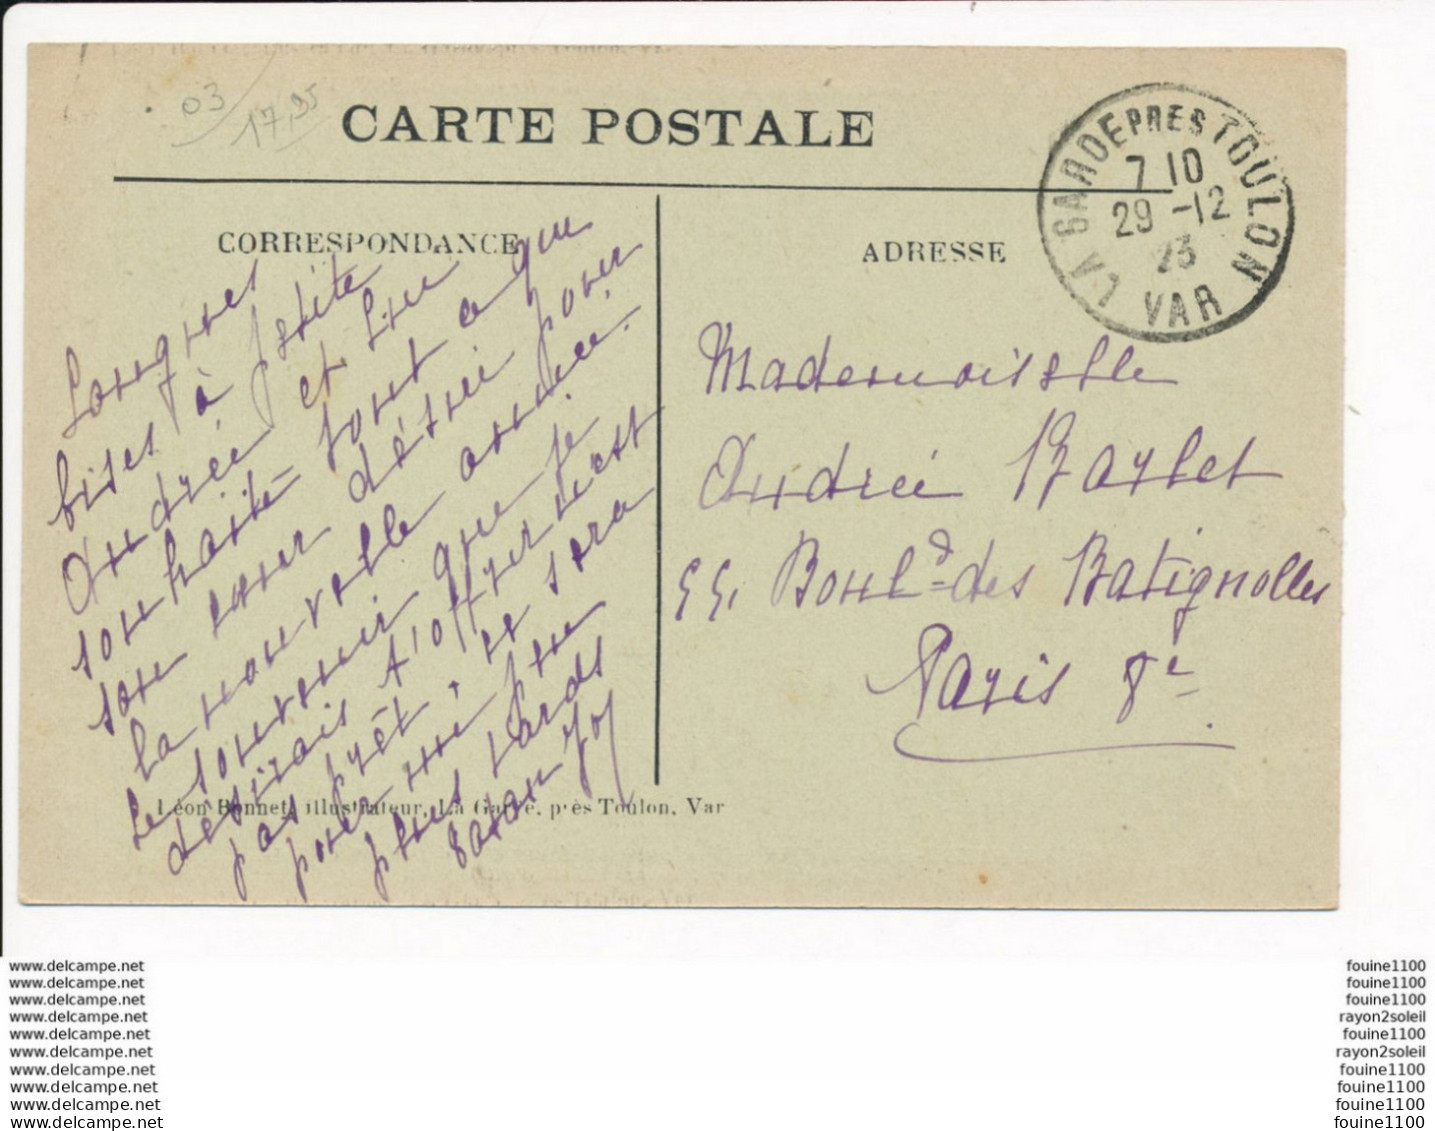 03
17,95
CARTE POSTALE
CORRESPONDANCE
ADRESSE
LA GARDE PRES TOULON
7 10
29 -12
23
VAR
Longues
bises à petite
Andrée et lui
souhaite tout ce que
son cœur désire pour
la nouvelle année.
Le souvenir que je
désirais t'offrir n'est
pas prêt, ce sera
pour une
plus tard
Mademoiselle
Andrée Barlet
55, Boul.d des Batignolles
Paris 8e
Léon Bonnet, illustrateur, La Garde, près Toulon, Var
www.delcampe.net
www.delcampe.net
www.delcampe.net
www.delcampe.net
www.delcampe.net
www.delcampe.net
www.delcampe.net
www.delcampe.net
www.delcampe.net
www.delcampe.net
fouine1100
fouine1100
fouine1100
rayon2soleil
fouine1100
rayon2soleil
fouine1100
fouine1100
fouine1100
fouine1100